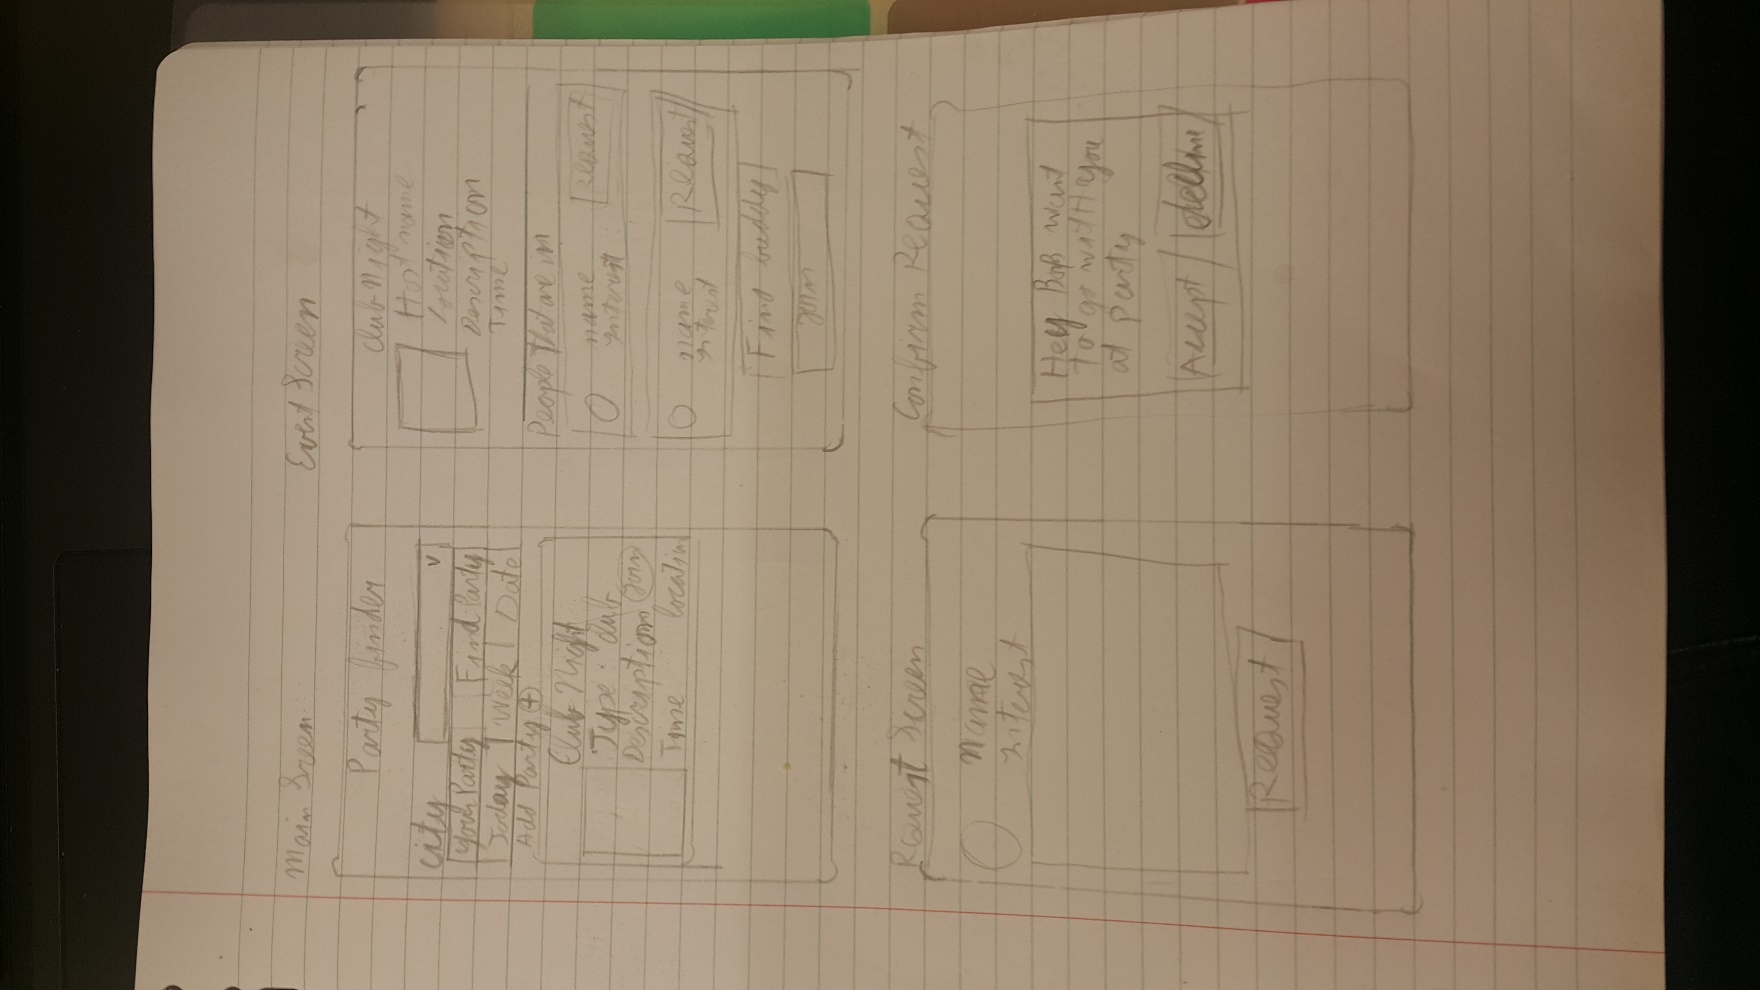 Main Screen
Party finder
City v
Your Party Find Party
Today | Week | Date
Add Party +
Club Night
Type · club
Description Join
Time location
Event Screen
Club Night
Host name
Location
Description
Time
People that are in
name
interest
Request
name
interest
Request
Find buddy
Join
Request Screen
name
interest
Request
Confirm Request
Hey Bob want
to go with you
at Party
Accept / decline